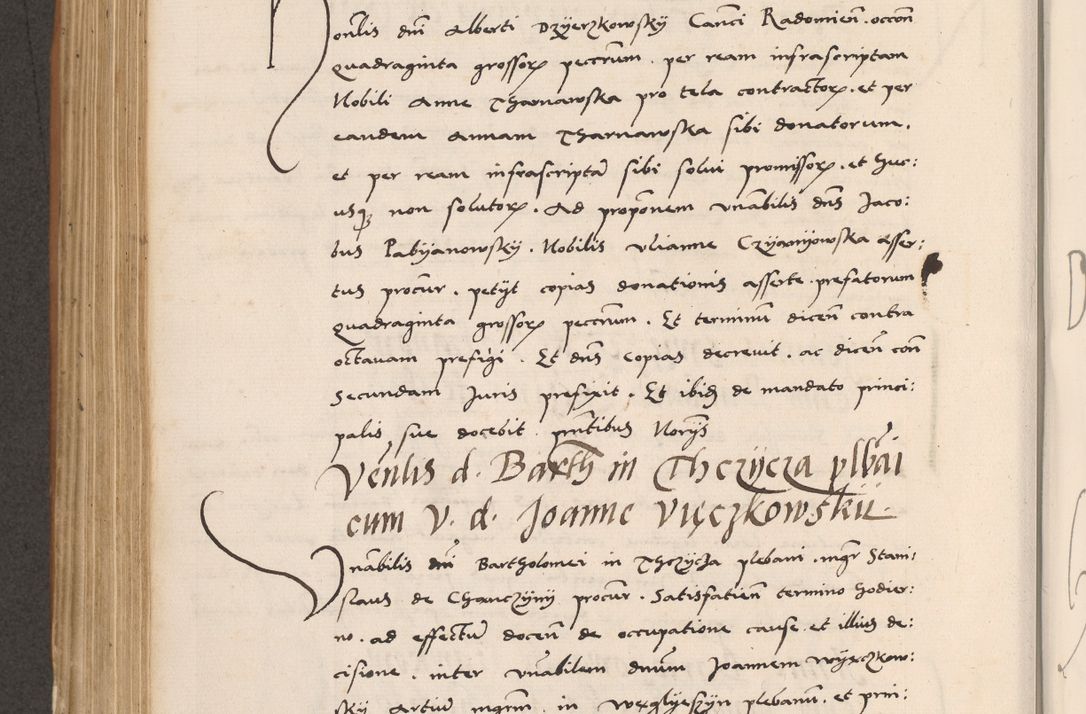 Honlis dni Alberti Dzyerzkowsky Canci Radomien. occon
quadraginta grossorx peccrum. per ream infrascriptam
Nobili Anne Tharnawska pro tela contractorx. et per
eandem Annam Tharnawska sibi donatorum.
et per ream infrascriptã sibi solui promissorx. et huc:
usqz non solutorx. Ad proponem vnabilis dns Jaco:
bus Pabyanowsky. Nobilis vlianne Czyanyowska asser:
tus procur. petyt copias donationis asserte prefatorum
quadraginta grossorx peccrum. Et terminũ dicen contra
octauam prefigi. Et dns copias decreuit. ac dicen con
secundam Juris prefixit. Et ibidz de mandato princi:
palis sue docebit. pntibus Norys
Venlis d. Barth in Thczycza plbai
cum V. d. Joanne Vięczkowskii.
Vnabilis dni Bartholomei in Thczycza plebani. mgr Stani:
slaus de Chanczyny procur. Satisfatien termino hodier:
no. ad effectũ docen de occupatione cause. et illius de:
cisione. inter vnabilem dnum Joannem Wyęczkow:
sky Artiũ mgrm. in Węglyeszyn plebanũ. et prin: